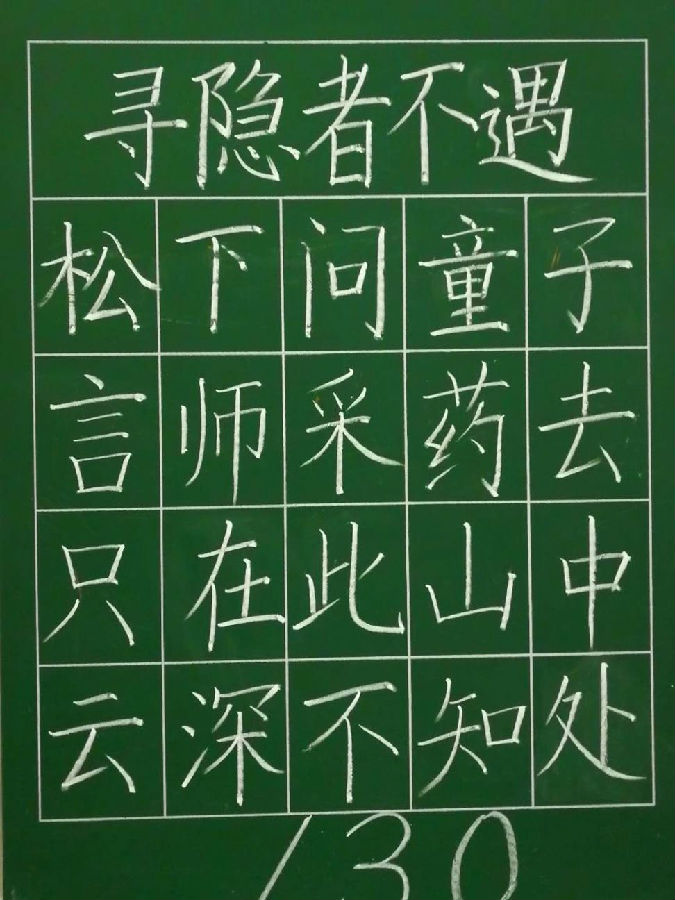 寻隐者不遇
松下问童子
言师采药去
只在此山中
云深不知处
130